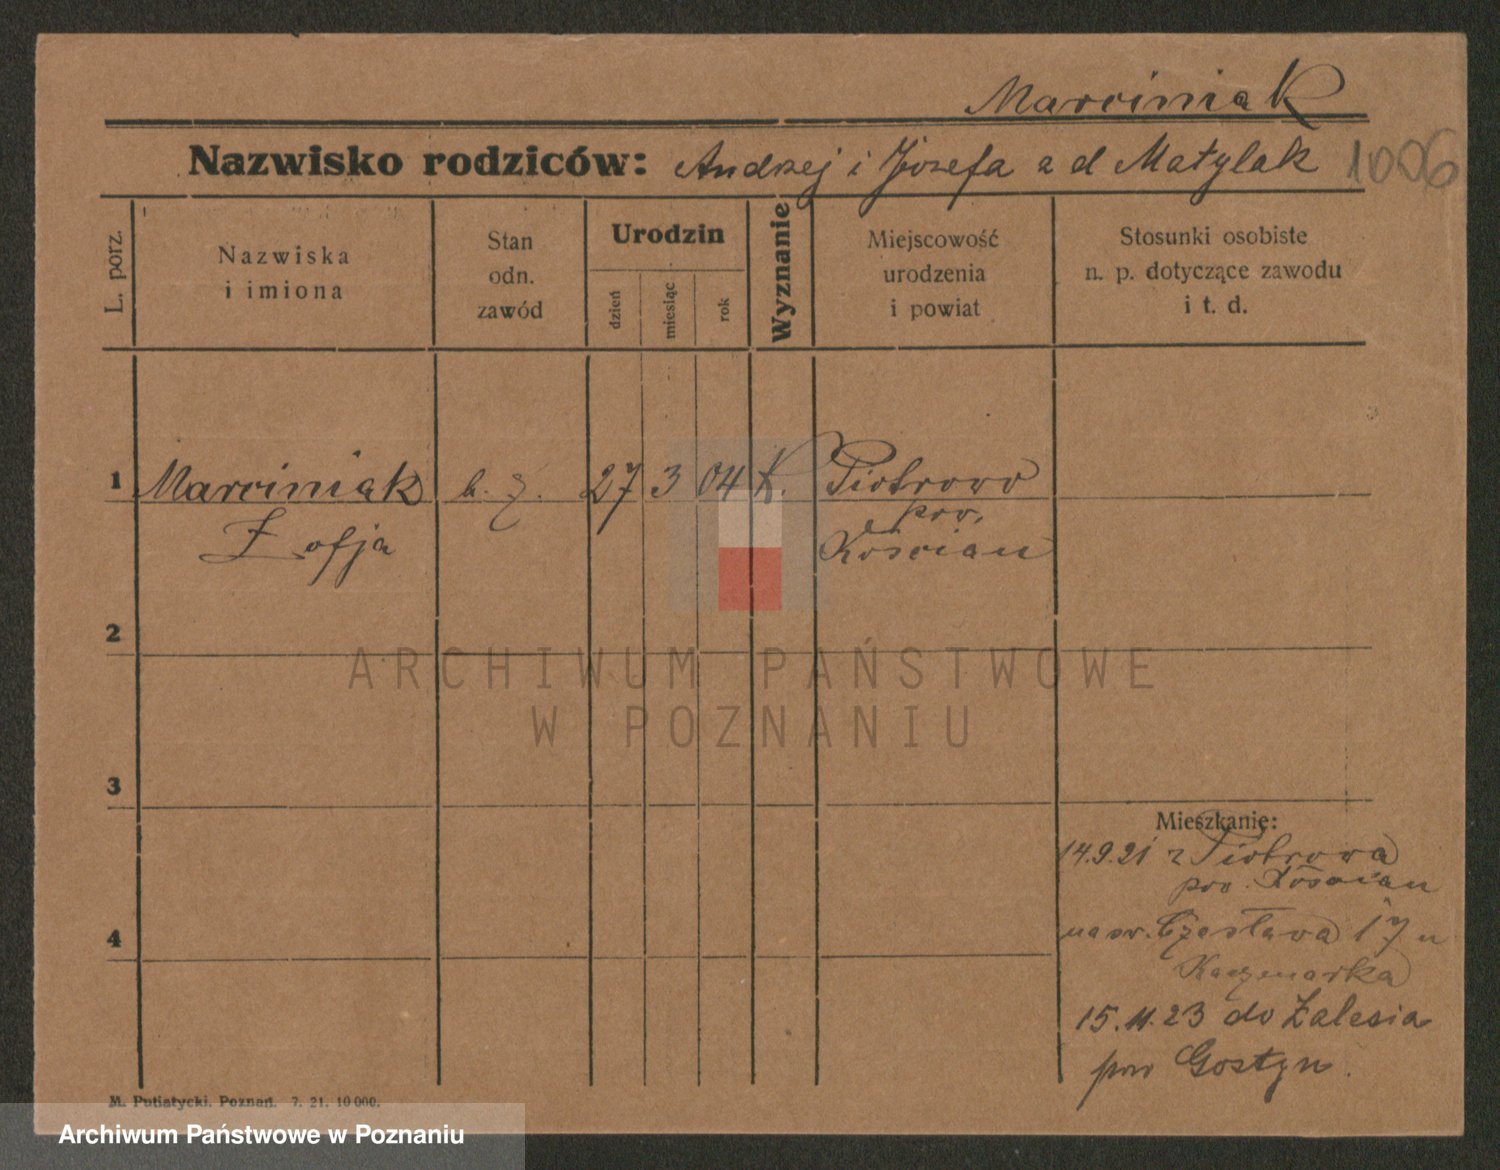 Marciniak
Nazwisko rodziców: Andrzej i Józefa z d Matylak 1006
L. porz.
Nazwiska
i imiona
Stan
odn.
zawód
Urodzin
dzień
miesiąc
rok
Wyznanie
Miejscowość
urodzenia
i powiat
Stosunki osobiste
n. p. dotyczące zawodu
i t. d.
1 Marciniak b. z. 27 3 04 K. Piotrowo
pow.
Zofja Kościan
2
3
Mieszkanie:
14.9.21 z Piotrowa
pow. Kościan
4
na św. Czesława 17 u
Kaczmarka
15.11.23 do Zalesia
pow Gostyn.
M. Putiatycki. Poznań. 7. 21. 10 000.
ARCHIWUM PAŃSTWOWE
W POZNANIU
Archiwum Państwowe w Poznaniu